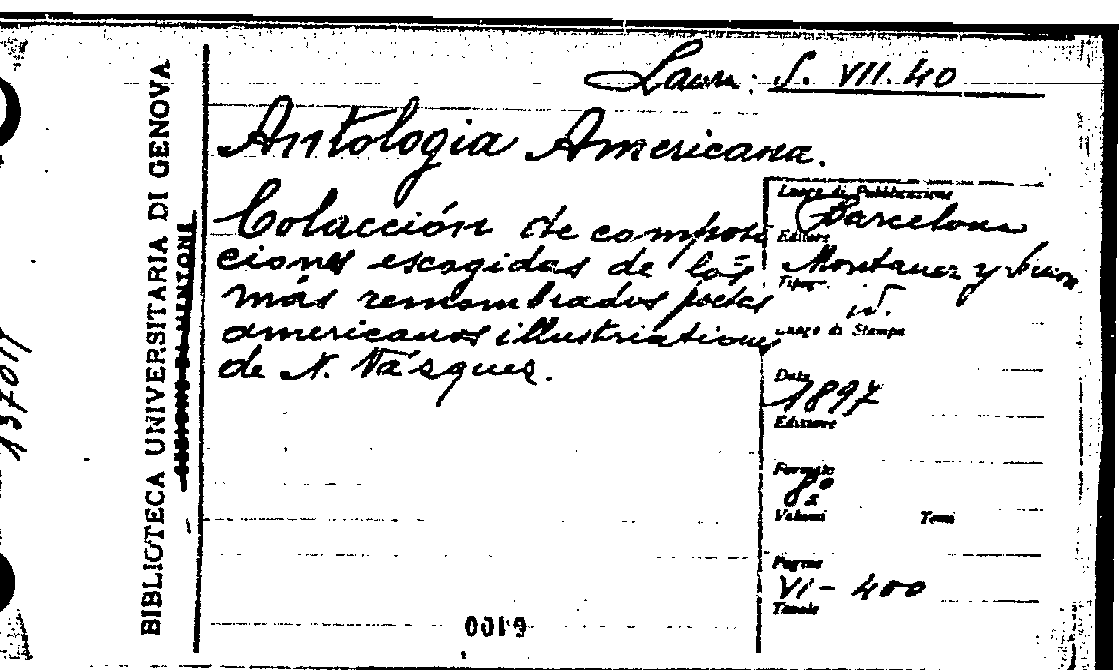 Laur. S. VII. 40
Antologia Americana.
Colacción de composi
ciones escogidas de los
más renombrados poetas
americanos illustriationes
de N. Vásquez.
Luogo di Pubblicazione
Barcelona
Editore
Montaner y Simon
Tipogr.
Luogo di Stampa
Data
1897
Edizione
Formato
8º
Volumi Tomi
Pagine
VI - 400
Tavole
BIBLIOTECA UNIVERSITARIA DI GENOVA
137017
0019